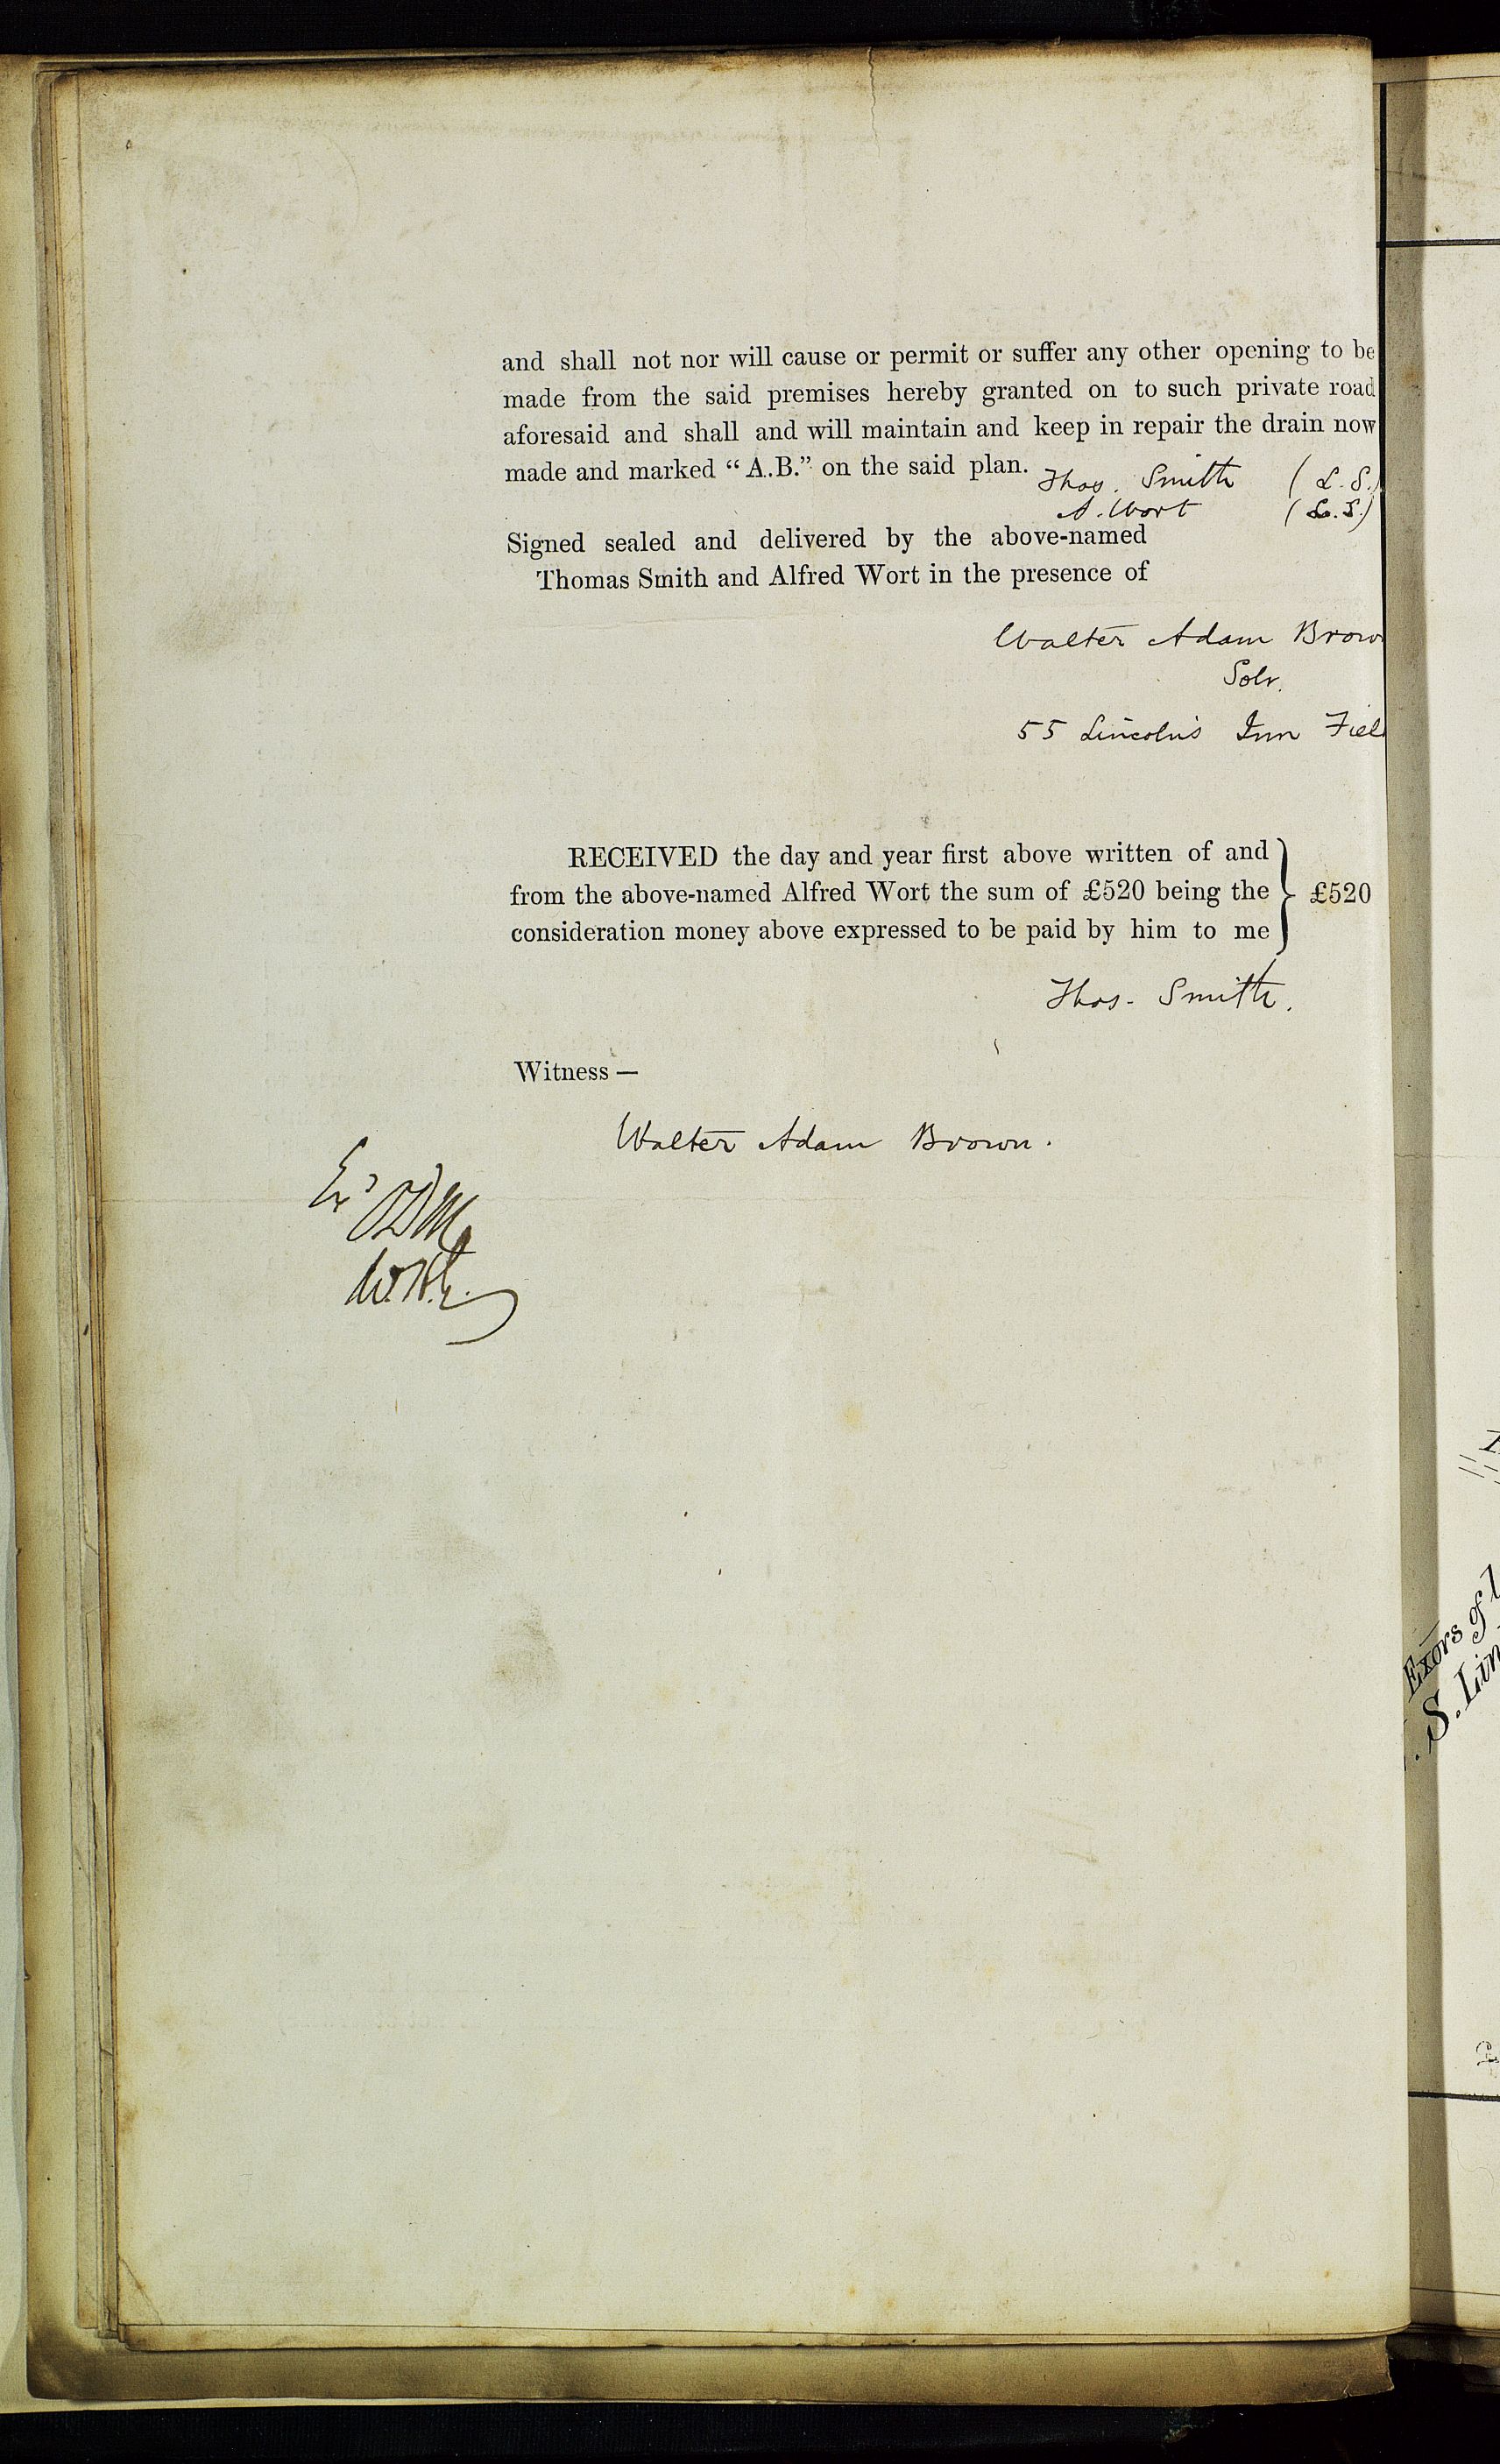 and shall not nor will cause or permit or suffer any other opening to be
made from the said premises hereby granted on to such private road
aforesaid and shall and will maintain and keep in repair the drain now
made and marked “A.B.” on the said plan.
Thos. Smith (L.S.)
A. Wort (L.S.)
Signed sealed and delivered by the above-named
Thomas Smith and Alfred Wort in the presence of
Walter Adam Brow
Solr.
55 Lincoln's Inn Fiel
RECEIVED the day and year first above written of and
from the above-named Alfred Wort the sum of £520 being the } £520
consideration money above expressed to be paid by him to me
Thos. Smith.
Witness —
Walter Adam Brown.
Exors of
S. Lin